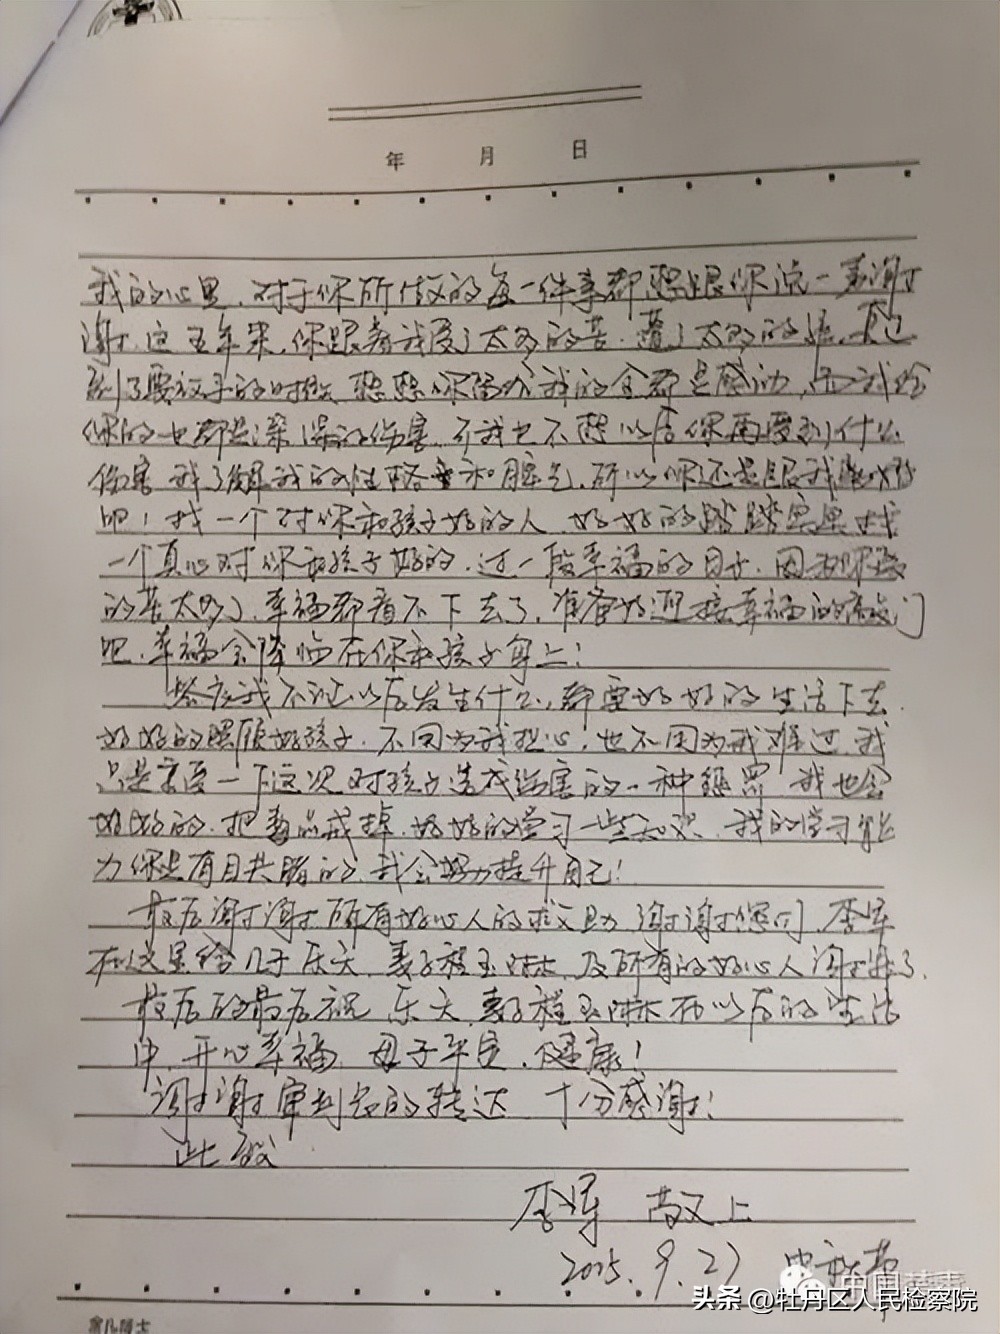 年 月 日
我的心里,对于你所做的每一件事都想跟你说一声谢
谢,这五年来,你跟着我受了太多的苦,遭了太多的
到了要放手的时候,想想你留给我的全都是感动,而我给
你的也都是深深的伤害,我也不想以后你再受到什么
伤害,我了解我的性格和脾气,所以你还是跟我离婚
吧!找一个对你和孩子好的人,好好的踏踏实实找
一个真心对你和孩子好的,过一段幸福的日子,因为你受
的苦太多了,幸福都看不下去了,准备好迎接幸福的敲门
吧,幸福会降临在你和孩子身上!
答应我不论以后发生什么,都要好好的生活下去,
好好的照顾好孩子,不因为我担心!也不因为我难过,我
只是承受一下这次对孩子造成伤害的一种惩罚,我也会
好好的,把毒品戒掉,好好的学习一些知识,我的学习能
力你是有目共睹的,我会努力提升自己!
最后谢谢所有好心人的救助,谢谢您们,李军
在这里给儿子乐天,妻子程玉琳,及所有的好心人谢谢了,
最后的最后祝乐天,妻子程玉琳在以后的生活
中,开心幸福,母子平安,健康!
谢谢审判长的转达 十分感谢!
此致
李军 敬上
2015.9.27 中秋节
中国禁毒
头条 @牡丹区人民检察院